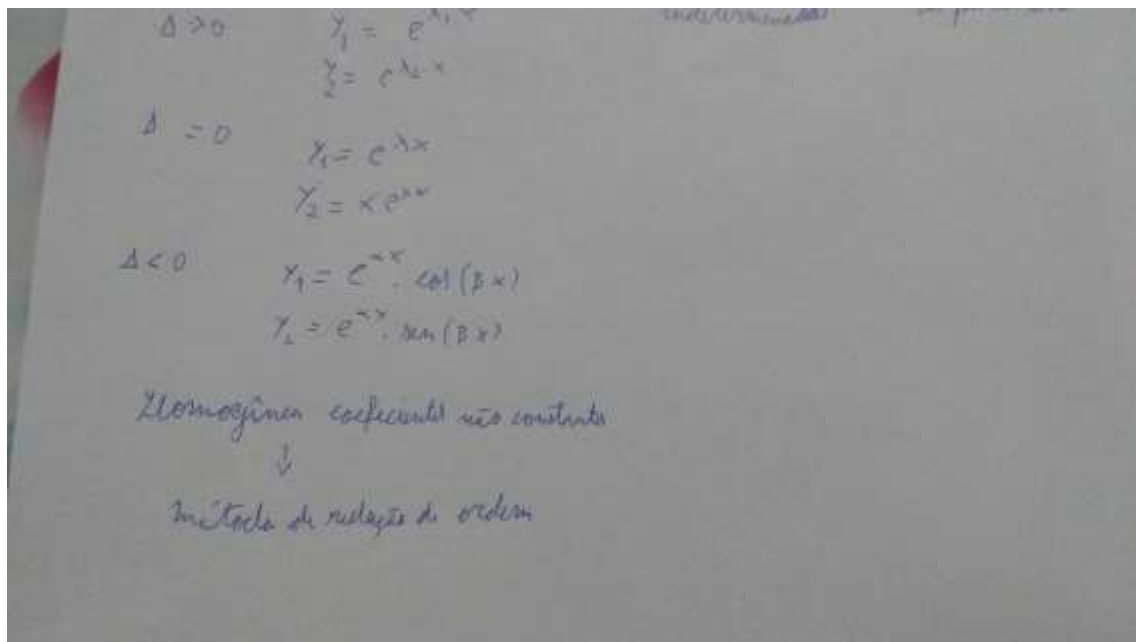 Δ > 0 Y₁ = e^λ₁x indeterminados
Y₂ = e^λ₂x
Δ = 0
Y₁ = e^λx
Y₂ = x e^λx
Δ < 0 Y₁ = e^αx . cos(βx)
Y₂ = e^αx . sen(βx)
Homogênea coeficientes não constantes
↓
método de redução de ordem